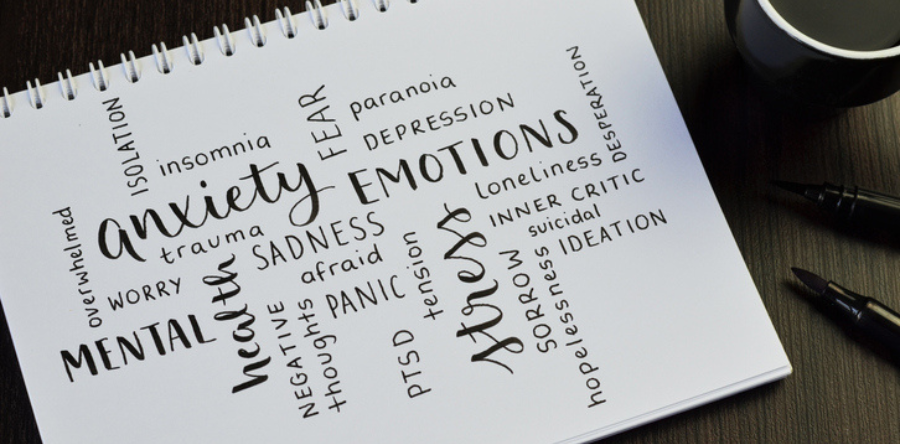 ISOLATION
insomnia
FEAR
paranoia
DEPRESSION
DESPERATION
overwhelmed
anxiety
EMOTIONS
trauma
SADNESS
loneliness
INNER CRITIC
WORRY
afraid
suicidal
IDEATION
MENTAL
health
NEGATIVE
thoughts
PANIC
tension
PTSD
stress
SORROW
hopelessness